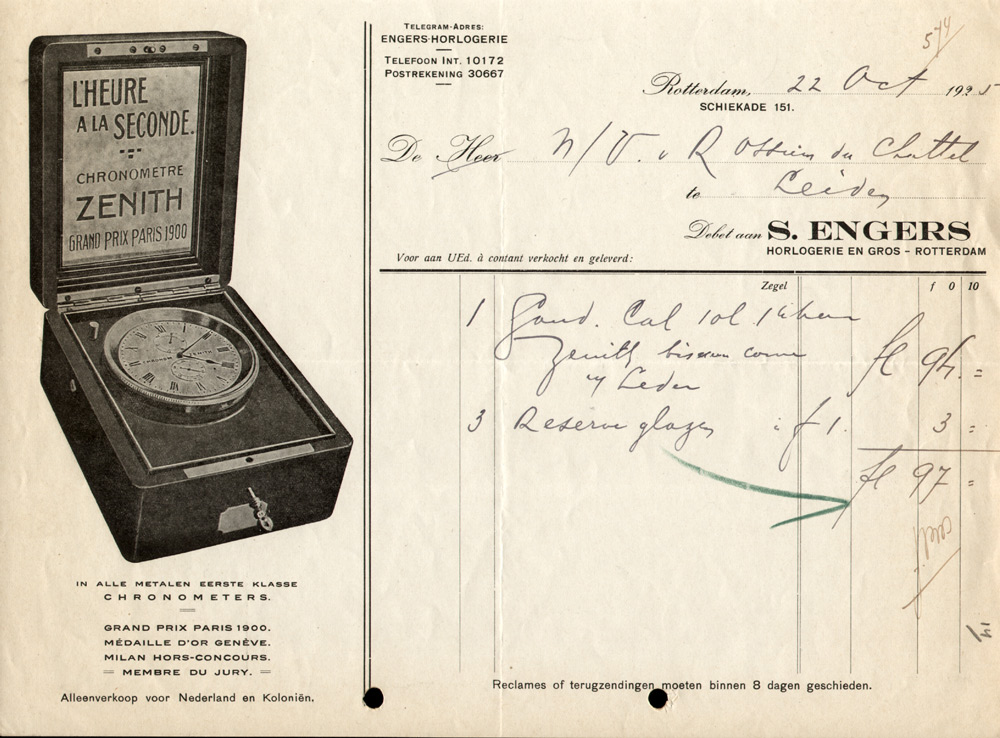 L'HEURE
A LA SECONDE.
CHRONOMETRE
ZENITH
GRAND PRIX PARIS 1900
IN ALLE METALEN EERSTE KLASSE
CHRONOMETERS.
GRAND PRIX PARIS 1900.
MÉDAILLE D'OR GENÈVE.
MILAN HORS-CONCOURS.
MEMBRE DU JURY.
Alleenverkoop voor Nederland en Koloniën.
TELEGRAM-ADRES:
ENGERS-HORLOGERIE
TELEFOON INT. 10172
POSTREKENING 30667
574
Rotterdam, 22 Oct 1925
SCHIEKADE 151.
De Heer N/V. v R du Chattel
te Leiden
Debet aan S. ENGERS
HORLOGERIE EN GROS - ROTTERDAM
Voor aan UEd. à contant verkocht en geleverd:
Zegel f 0 10
1 Goud. Cal
Zenith fl 94. =
Leder
3 Reserve glazen f 1. 3 =
fl 97 =
Reclames of terugzendingen moeten binnen 8 dagen geschieden.